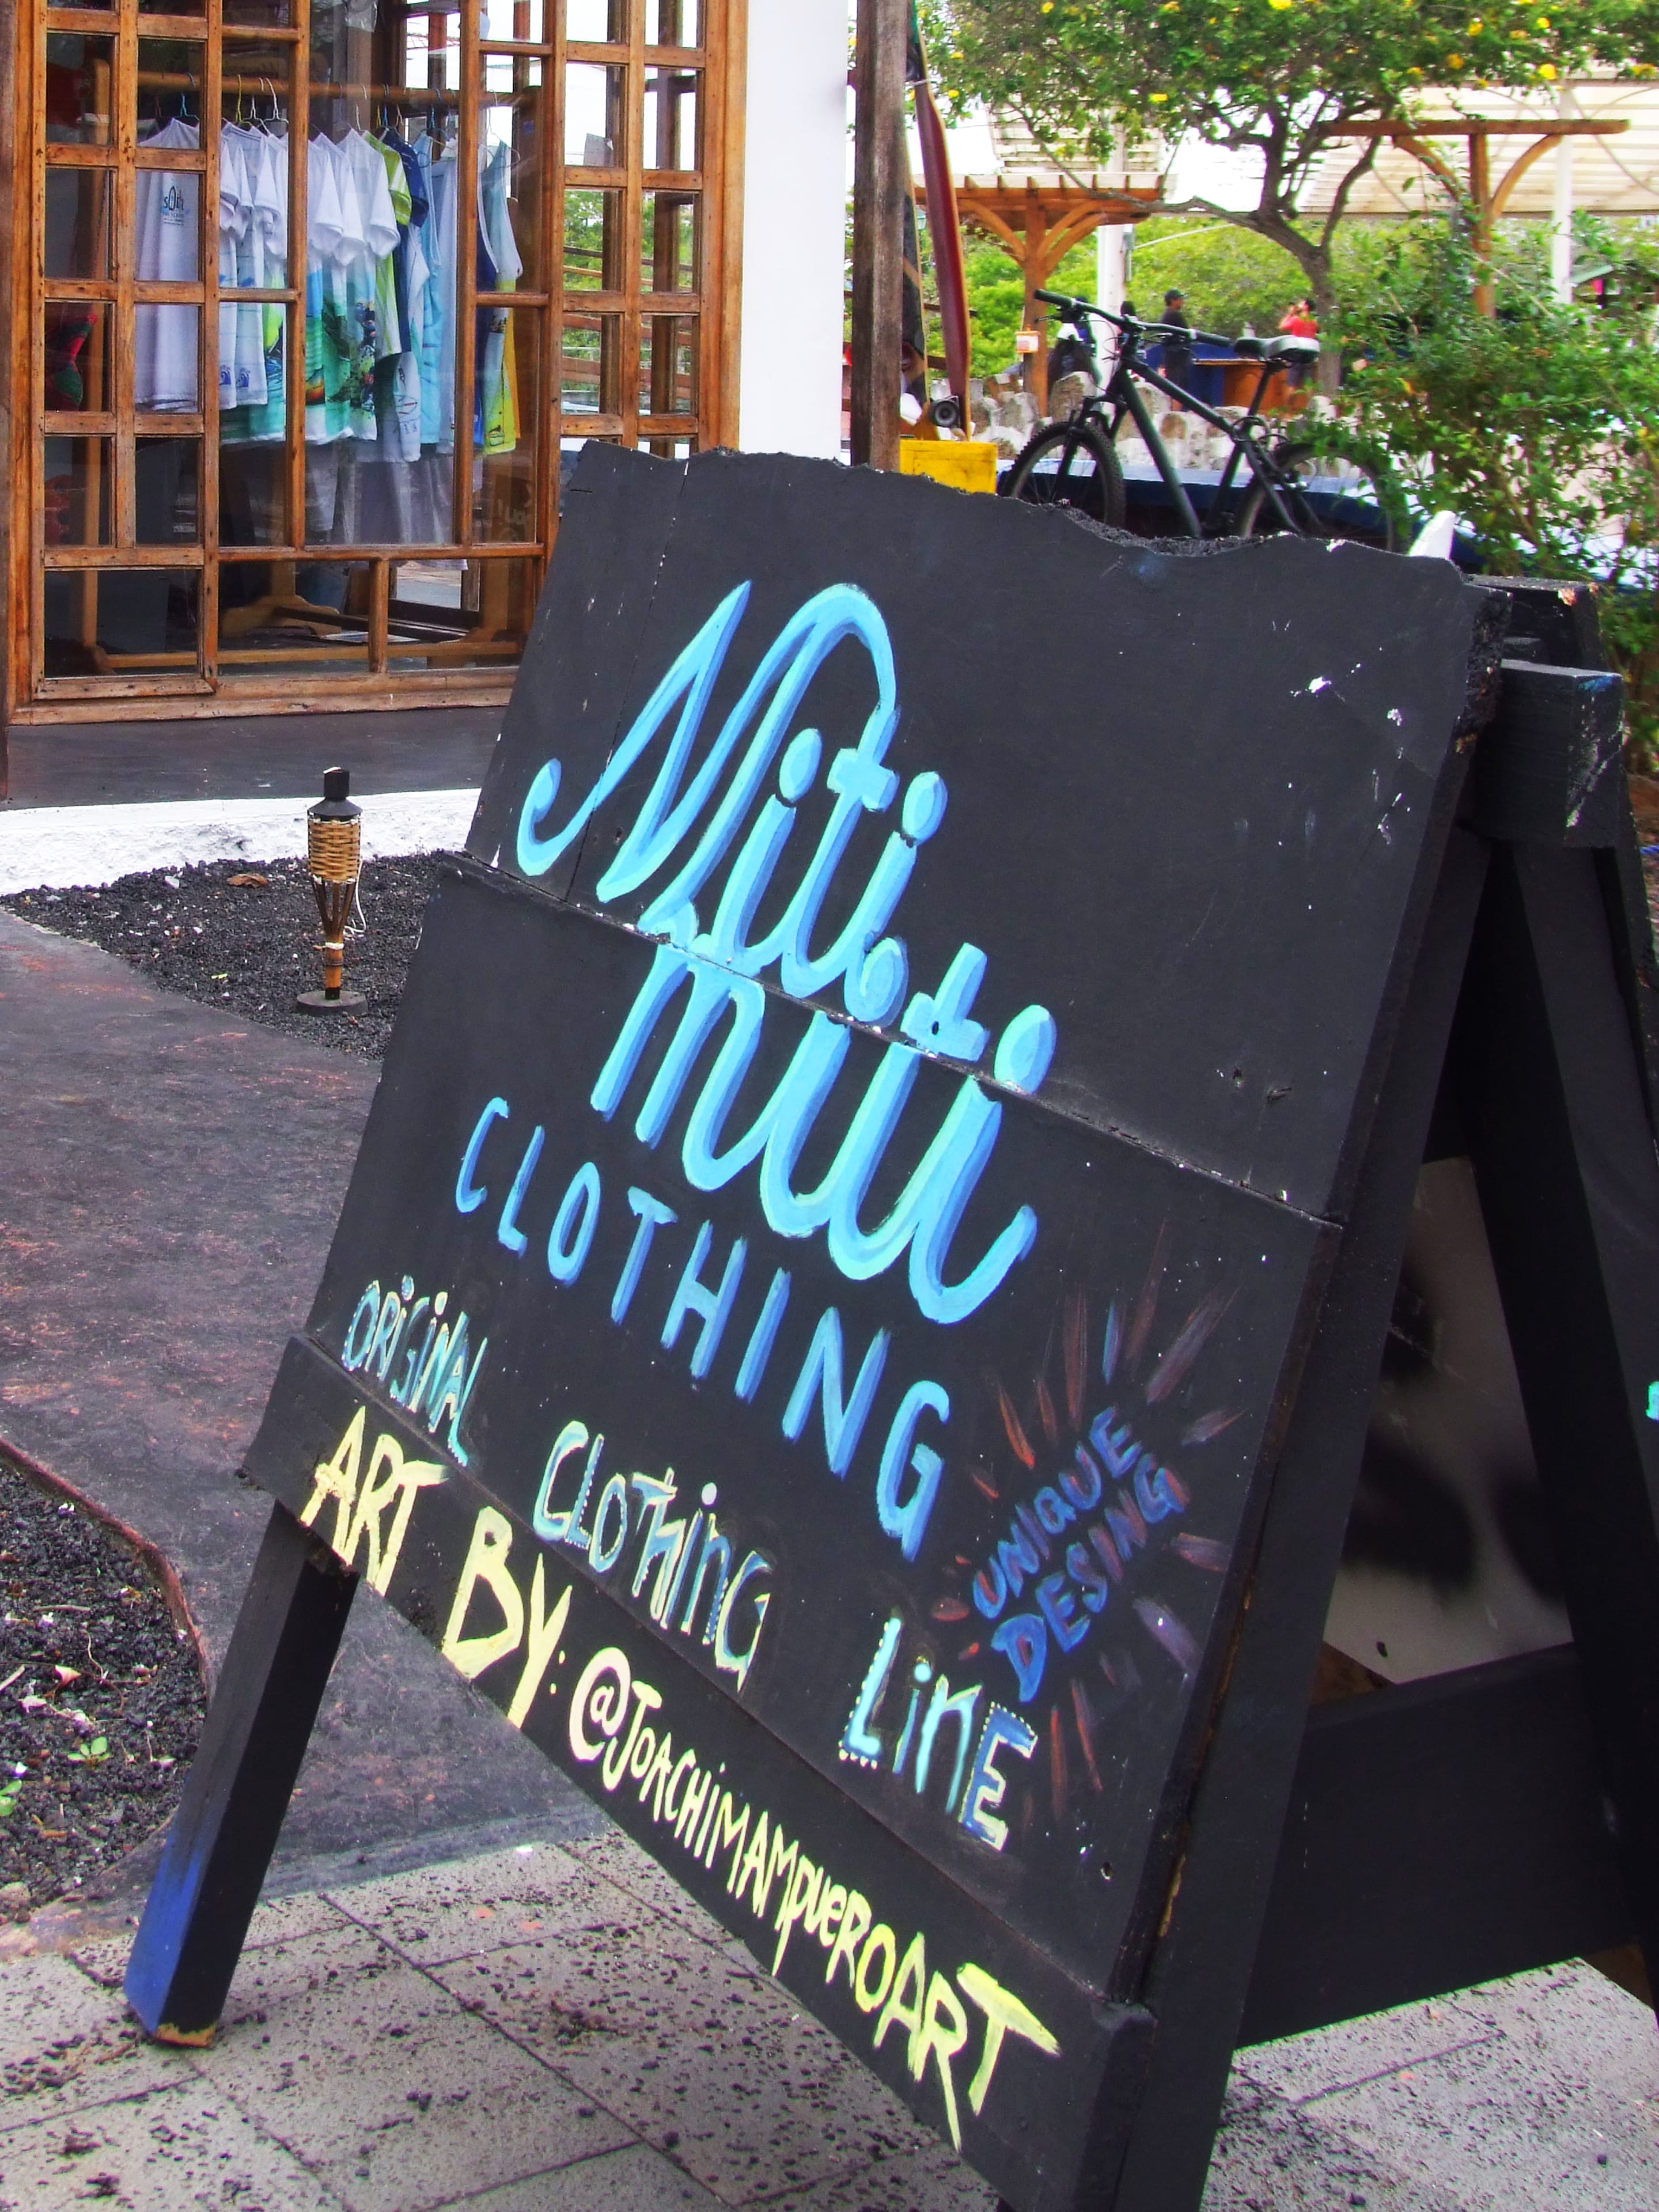 Niti
miiti
CLOTHING
ORiGiNAL CLOThinG LiNE
UNIQUE
DESING
ART BY: @JOACHIMAMpUeROART